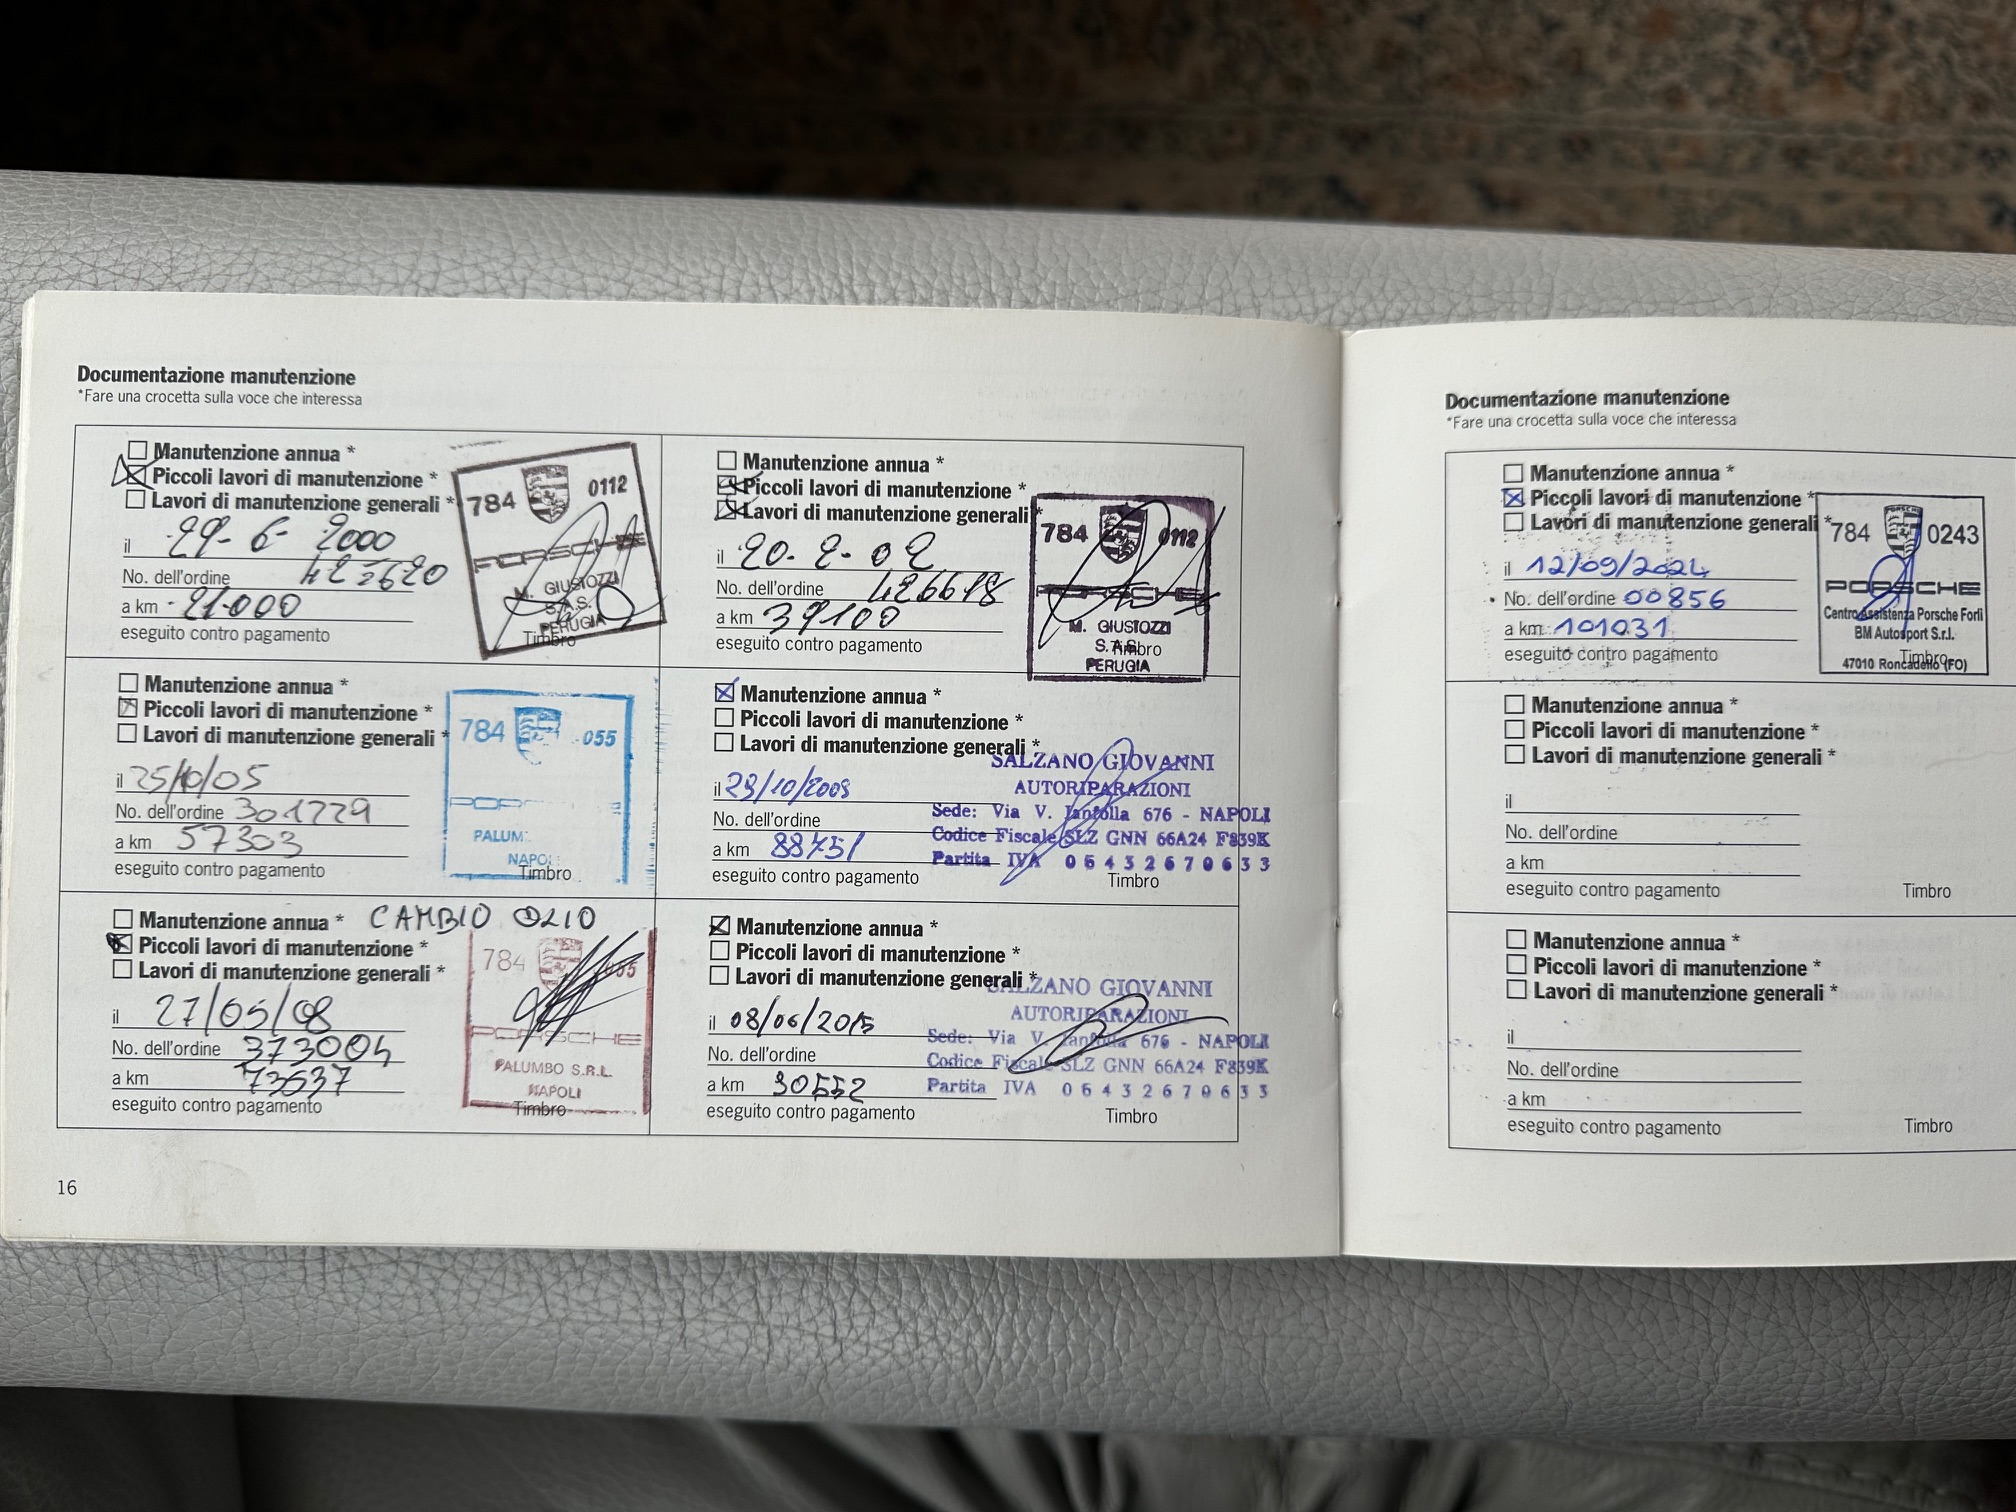 Documentazione manutenzione
*Fare una crocetta sulla voce che interessa
Manutenzione annua *
Piccoli lavori di manutenzione *
Lavori di manutenzione generali *
il 29-6-2000
No. dell'ordine
a km 21000
eseguito contro pagamento
784 0112
PORSCHE
M. GIUSTOZZI
S.A.S.
PERUGIA
Timbro
Manutenzione annua *
Piccoli lavori di manutenzione *
Lavori di manutenzione generali *
il 20-2-02
No. dell'ordine 426618
a km 39100
eseguito contro pagamento
784 0112
PORSCHE
M. GIUSTOZZI
S.A.S.
PERUGIA
Timbro
Manutenzione annua *
Piccoli lavori di manutenzione *
Lavori di manutenzione generali *
il 25/10/05
No. dell'ordine 301229
a km 57303
eseguito contro pagamento
784 055
POR
PALUM
NAPOL
Timbro
Manutenzione annua *
Piccoli lavori di manutenzione *
Lavori di manutenzione generali *
il 29/10/2009
No. dell'ordine
a km 88751
eseguito contro pagamento
SALZANO GIOVANNI
AUTORIPARAZIONI
Sede: Via V. Janfolla 676 - NAPOLI
Codice Fiscale SLZ GNN 66A24 F839K
Partita IVA 0 6 4 3 2 6 7 0 6 3 3
Timbro
Manutenzione annua * CAMBIO OLIO
Piccoli lavori di manutenzione *
Lavori di manutenzione generali *
il 27/05/08
No. dell'ordine 373004
a km 73637
eseguito contro pagamento
784 055
PORSCHE
PALUMBO S.R.L.
NAPOLI
Timbro
Manutenzione annua *
Piccoli lavori di manutenzione *
Lavori di manutenzione generali *
il 08/06/2015
No. dell'ordine
a km 90552
eseguito contro pagamento
SALZANO GIOVANNI
AUTORIPARAZIONI
Sede: Via V. Janfolla 676 - NAPOLI
Codice Fiscale SLZ GNN 66A24 F839K
Partita IVA 0 6 4 3 2 6 7 0 6 3 3
Timbro
16
Documentazione manutenzione
*Fare una crocetta sulla voce che interessa
Manutenzione annua *
Piccoli lavori di manutenzione *
Lavori di manutenzione generali *
il 12/09/2024
No. dell'ordine 00856
a km 101031
eseguito contro pagamento
PORSCHE
784 0243
PORSCHE
Centro Assistenza Porsche Forlì
BM Autosport S.r.l.
47010 Roncadello (FO)
Timbro
Manutenzione annua *
Piccoli lavori di manutenzione *
Lavori di manutenzione generali *
il
No. dell'ordine
a km
eseguito contro pagamento
Timbro
Manutenzione annua *
Piccoli lavori di manutenzione *
Lavori di manutenzione generali *
il
No. dell'ordine
a km
eseguito contro pagamento
Timbro